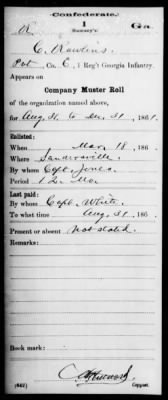 Confederate.
R
1
Ga.
Ramsey's
C. Rawlins.
Pvt, Co. E, 1 Reg't Georgia Infantry.
Appears on
Company Muster Roll
of the organization named above,
for Aug. 31 to Dec. 31, 1861.
Enlisted:
When Mar 18, 186 .
Where Sandersville
By whom Capt. Jones.
Period 12 Mo
Last paid:
By whom Capt. White.
To what time Aug. 31, 186 .
Present or absent Not stated.
Remarks:
Book mark:
(642)
Copyist.